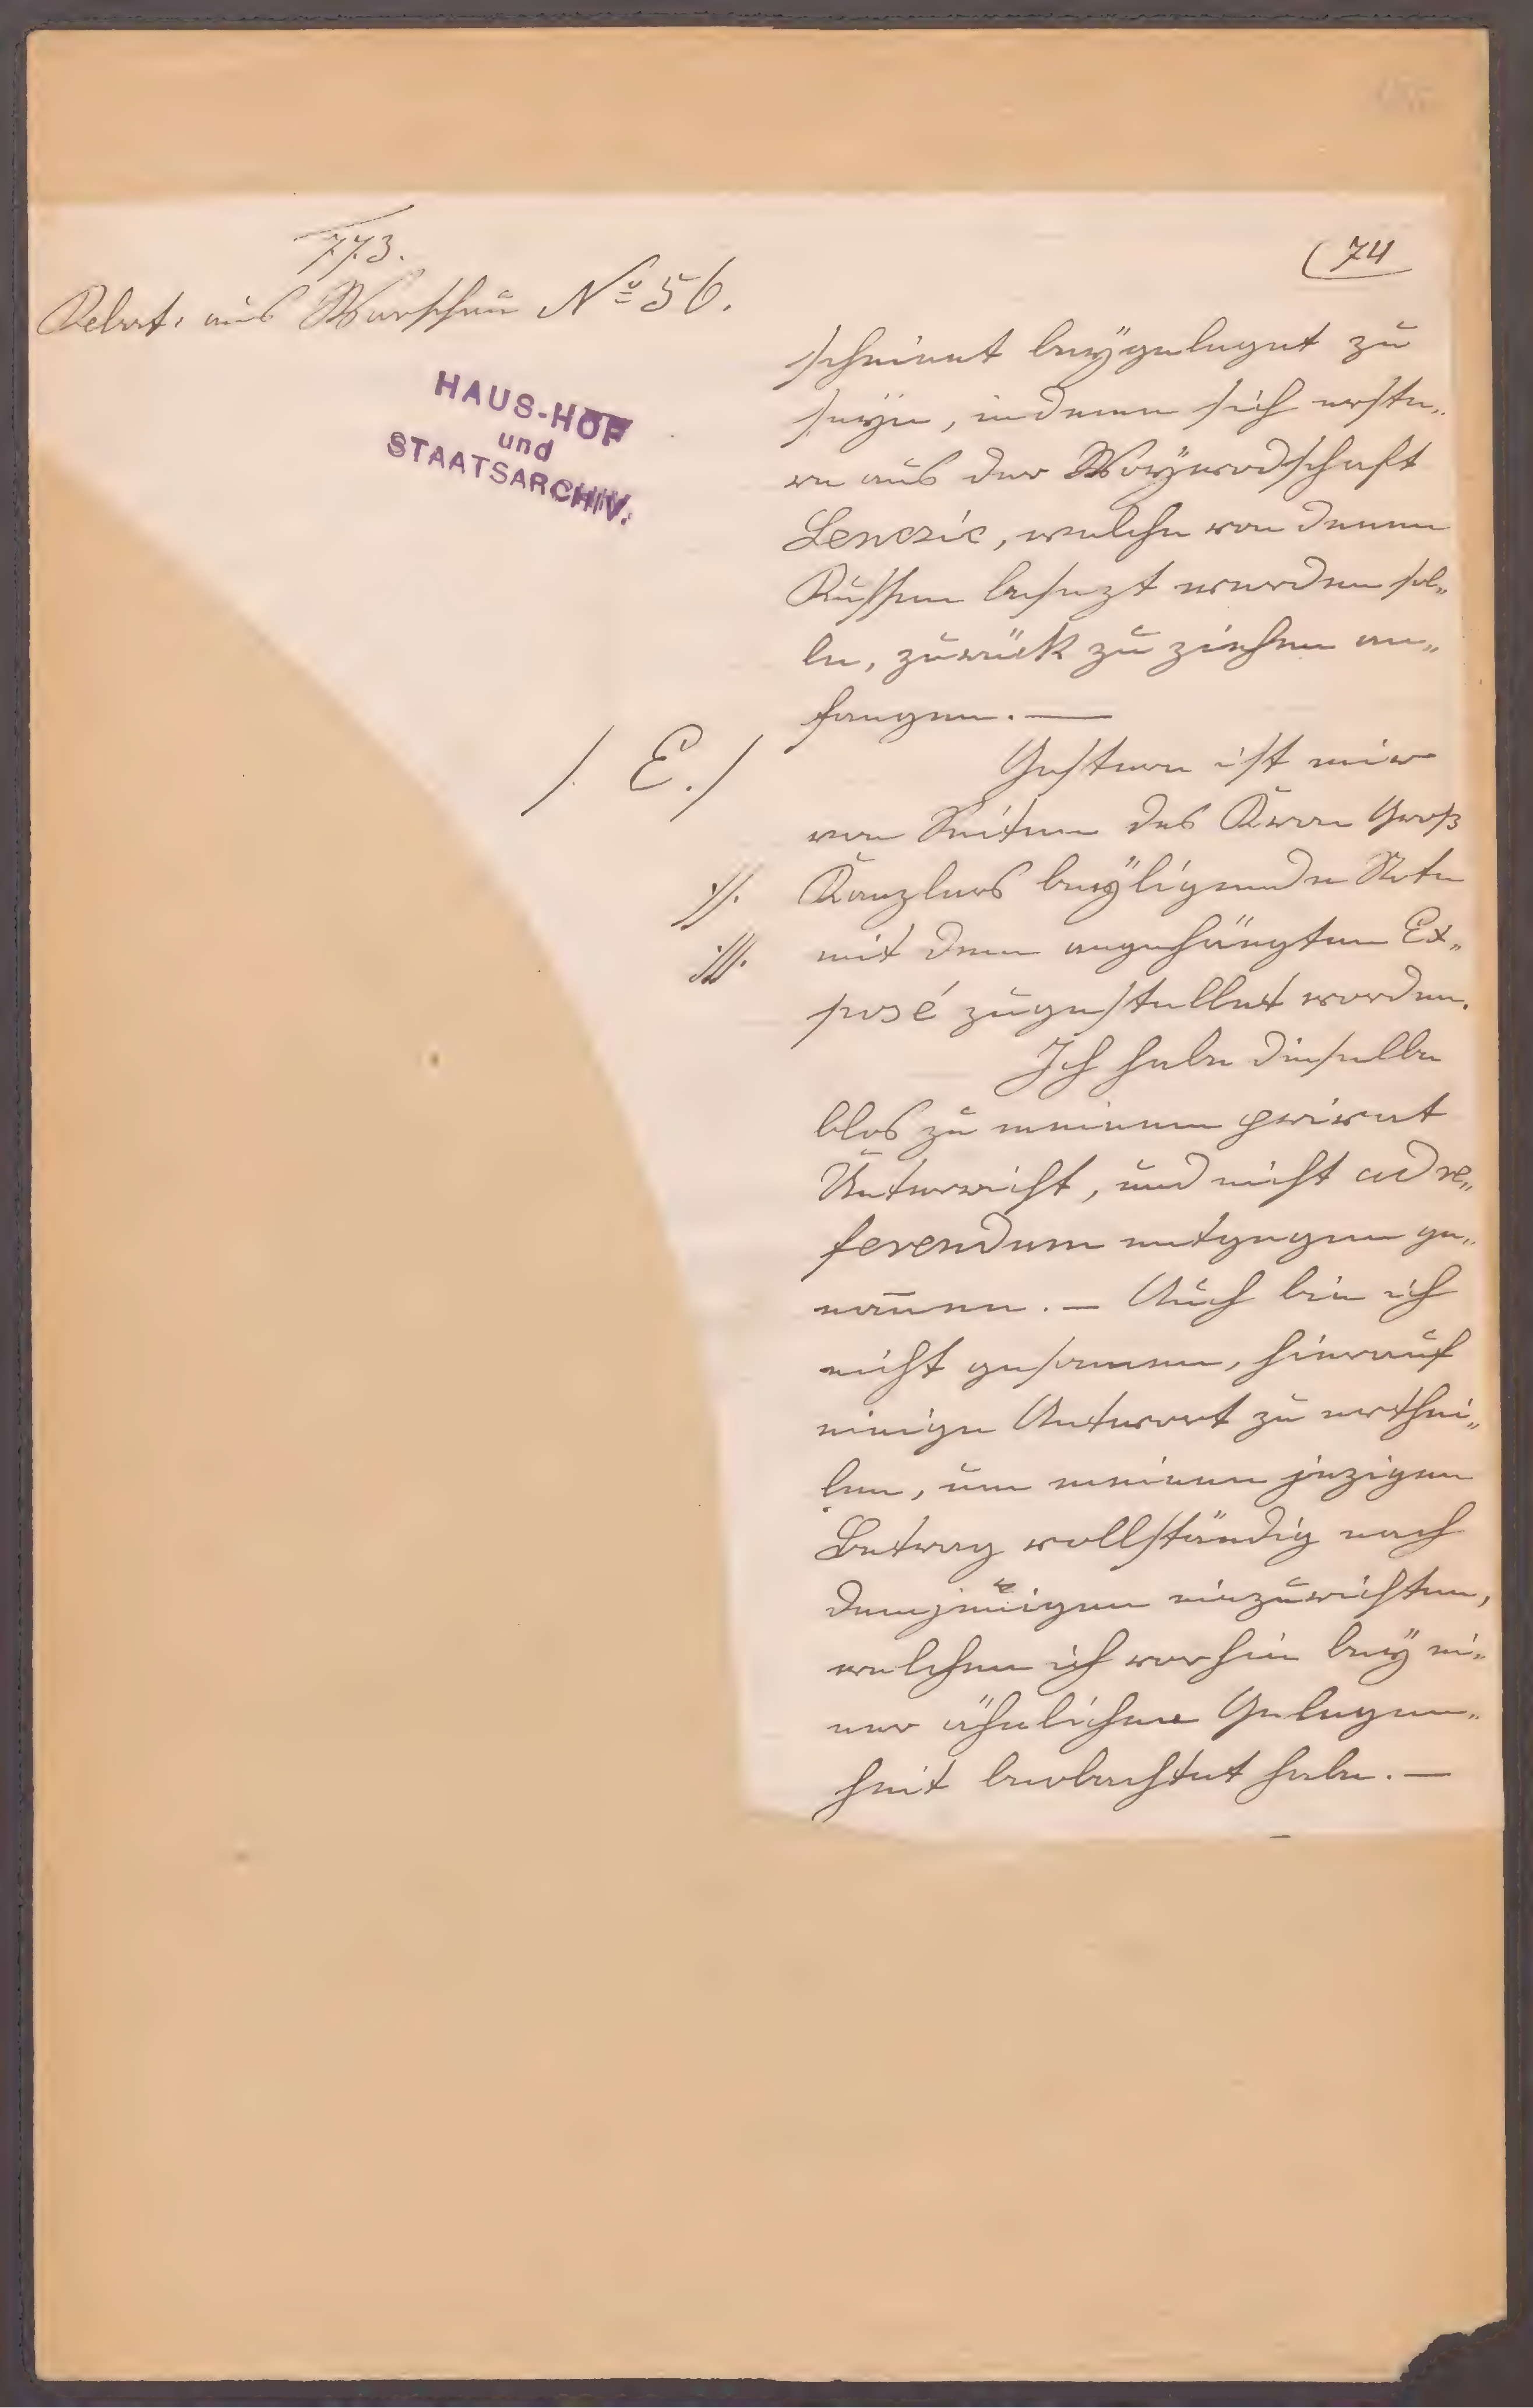 773.
Relat. aus Warschau Nº 56.
HAUS-HOF
und
STAATSARCHIV.
(74
scheinet beÿgeleget zu
seÿn, indeme sich erste„
re aus der Woÿwodschaft
Lenczic, welche von denen
Russen besezt werden sol„
le, zurück zu ziehen an„
fangen. —
/. E./
Gestern ist mir
von Seiten des Kron Groß
./. Kanzlers beÿligende Note
.//. mit dem angehängten Ex„
posé zugestellet worden.
Ich habe dieselbe
blos zu meinem privat
Unterricht, und nicht ad re„
ferendum entgegen ge„
nom̄en. — Auch bin ich
nicht gesonnen, hierauf
einige Antwort zu erthei„
len, um meinen jezigen
Betrag vollständig nach
demjenigen einzurichten,
welchen ich vorhin beÿ ei„
ner ähnlichen Gelegen„
heit beobachtet habe. —